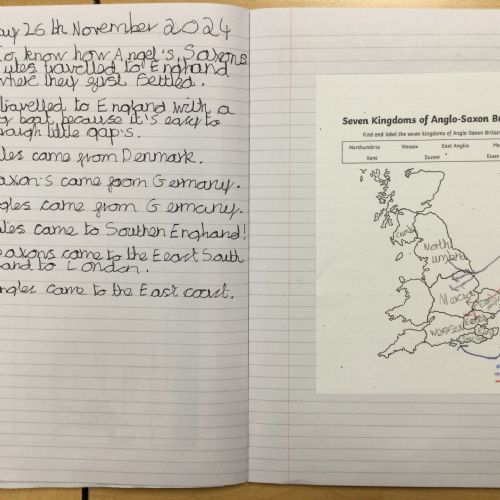 ay 26 th November 2024
to know how Angel's, Saxons
utes travelled to Enghand
where they first settled.
travelled to England with a
boat because it's easy to
rough little gap's.
utes came from Denmark.
axon's came from Germany.
gles came from Germany.
utes came to Southen Enghand!
saxons came to the Eeast South
and to London.
ngles came to the East coast.
Seven Kingdoms of Anglo-Saxon Br
Find and label the seven kingdoms of Anglo-Saxon Britain
Northumbria Wessex East Anglia Me
Kent Sussex Essex
North
umbria
Mercia
Wessex